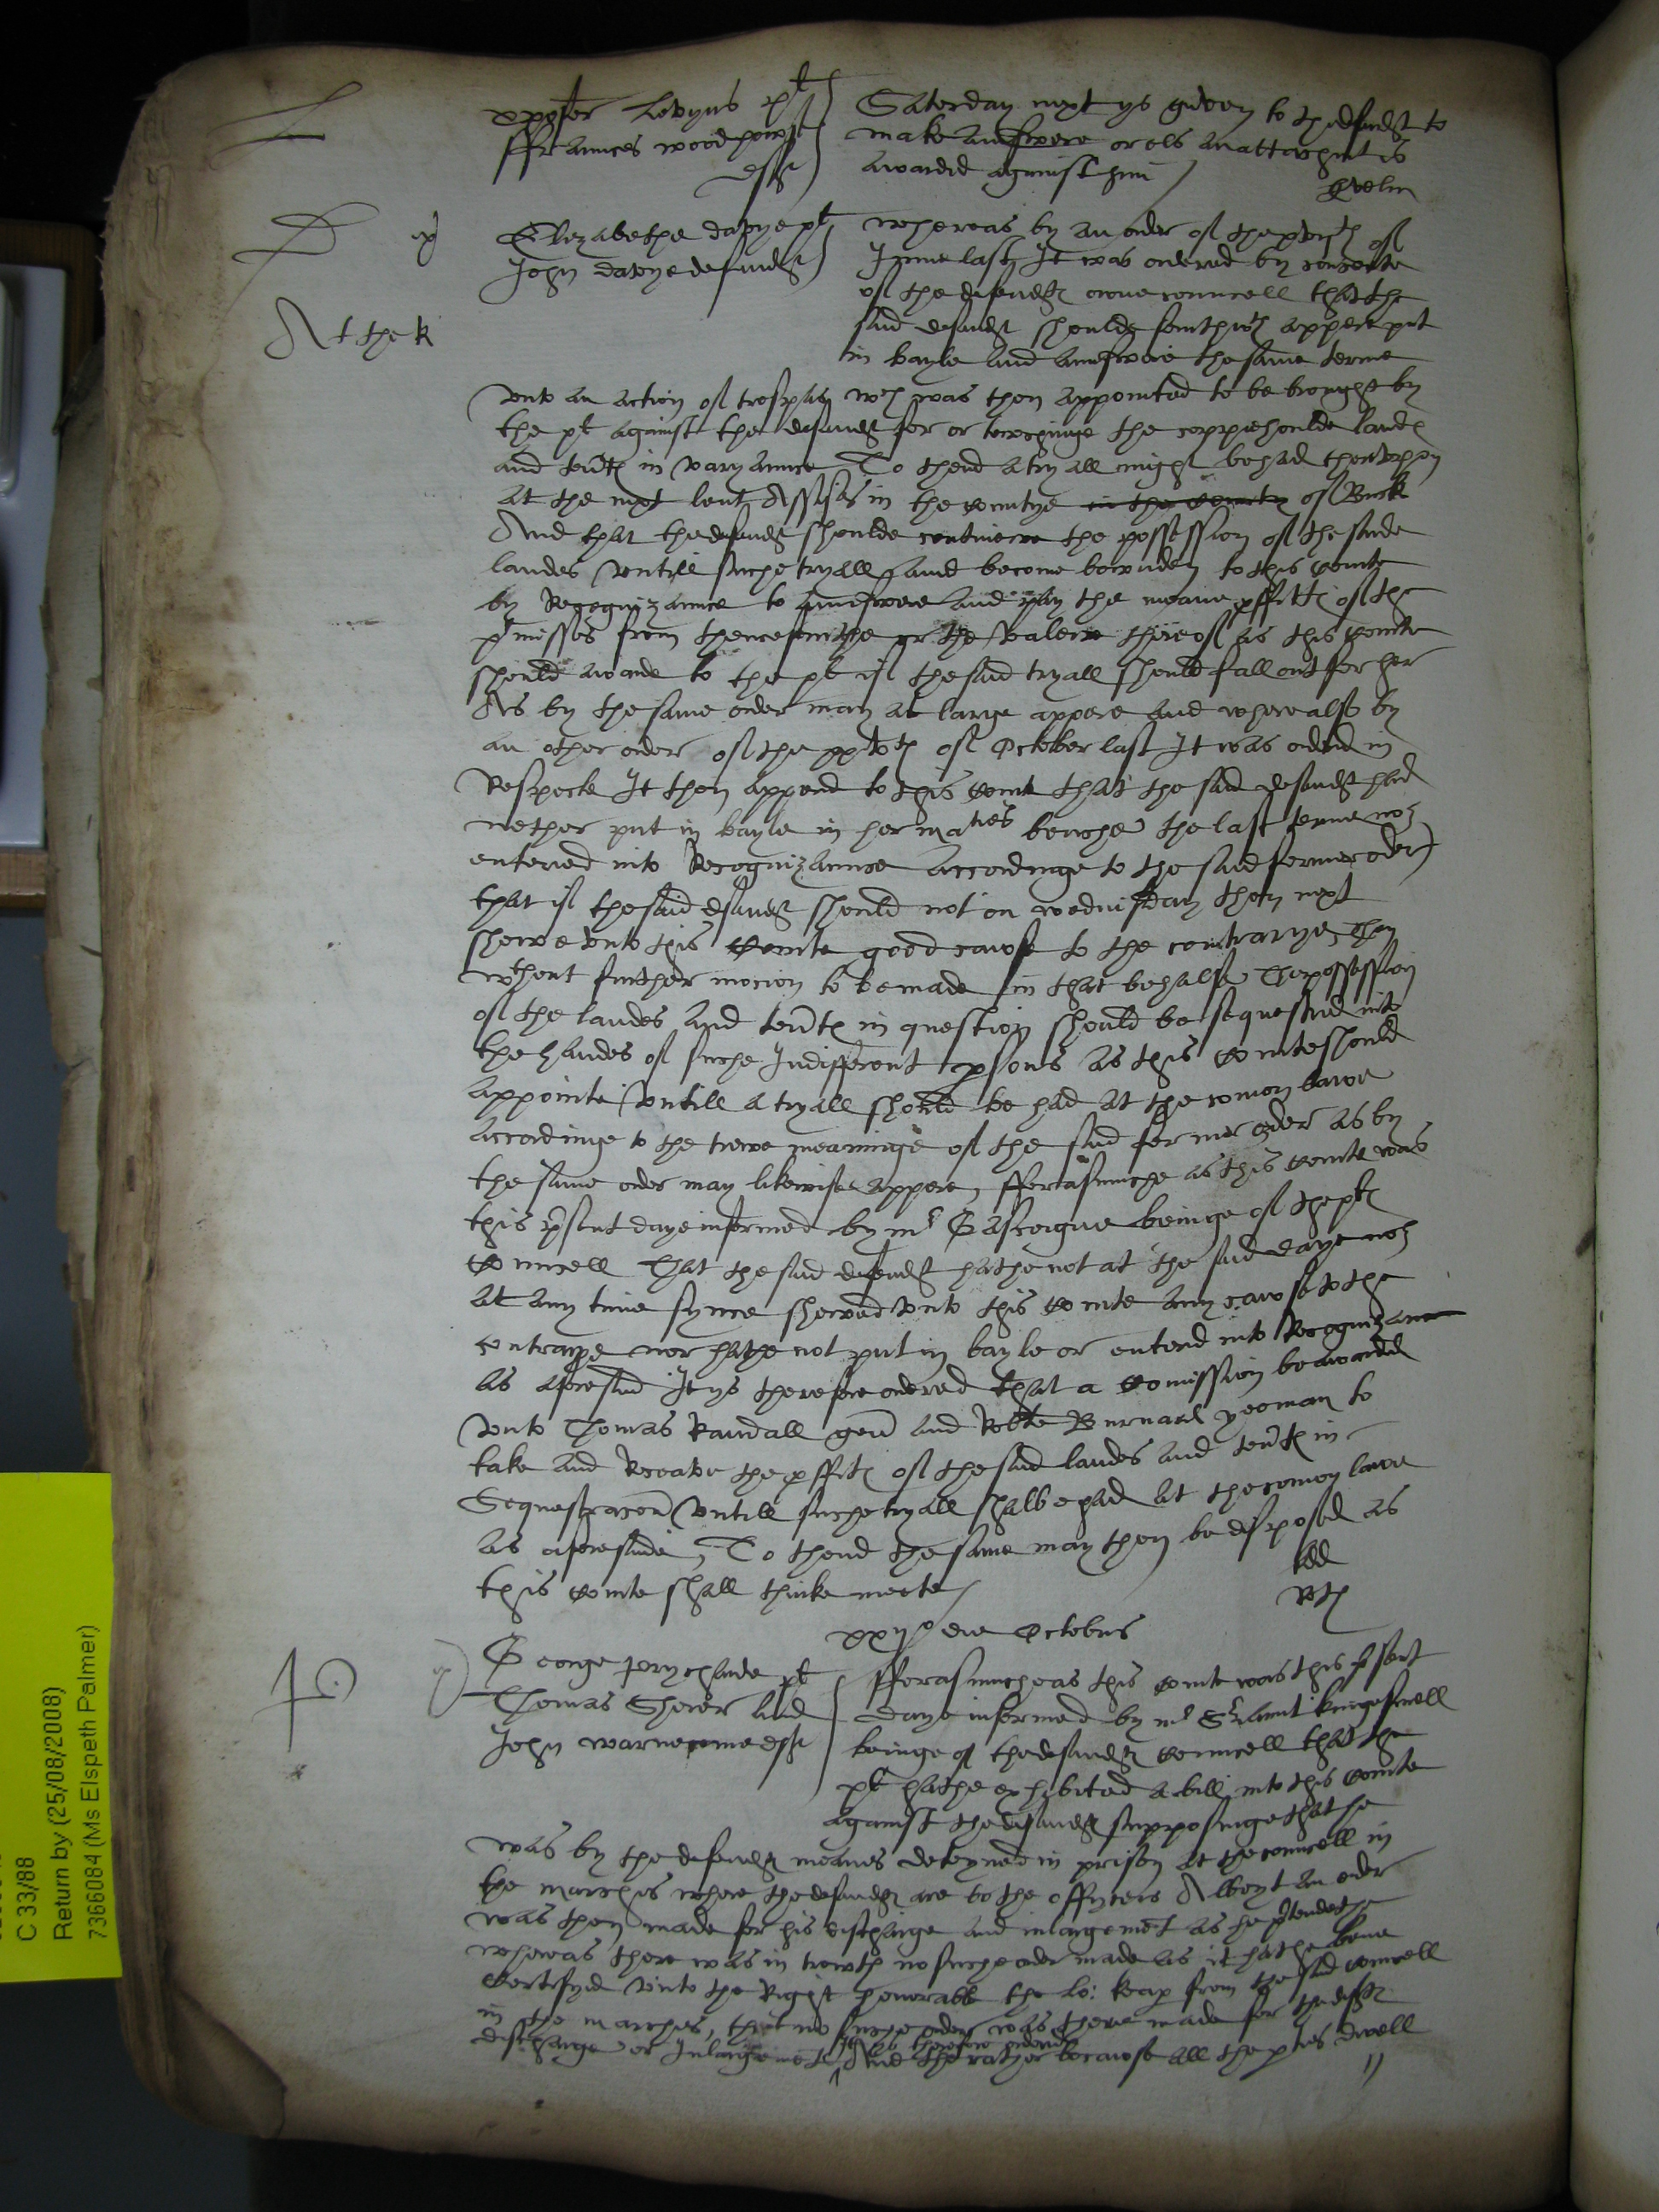 L
xpofer Lovyns plt
ffraunces woodhowse
deft
Saterday next ys given to thedefendt to
make annswere or els an attachmt is
awarded against him
Evelin
D ex
Elizabethe davye plt
John davye defendt
At the k
whereas by an order of the
June last It was ordered by consente
of the defendtes owne councell that the
said defendt shoulde forthwth appere put
in bayle and annswere the same terme
vnto an action of trespas wch was then appointed to be brought by
the plt against the defendt for or towchinge the coppieholde landes
and tentes in varyaunce To thend a tryall might be had therevppon
at the next lent Assises in the countye in the county of Buck
And that the defendt shoulde contineue the possession of the saide
landes vntill suche tryall and become bownden to this courte
by Recognizaunce to annswere and pay the meane pffittes of the
pmisses from thenceforthe or the valewe thereof as this courte
should awarde to the plt if the said tryall should fall out for her
As by the same order may at large appere and where also by
an other order of the xxvth of October last It was ordred in
Respecte It then appered to this courte that the said defendt had
nether put in bayle in her maties benche the last terme nor
entered into Recognizaunce accordinge to the said former order
that if the said defendt should not on wednisday then next
shewe vnto this courte good cawse to the contrarye Then
wthout further mocion to be made in that behalfe The possession
of the landes and tentes in question should be sequestred into
the handes of suche Indifferent psons as this courte should
appointe vntill a tryall should be had at the comon lawe
accordinge to the trewe meaninge of the said former order as by
the same order may likewise appere, fforasmuche as this courte was
this psent daye informed by mr Gascoigne beinge of the pltes
councell That the said defendt hathe not at the said daye nor
at any time synce shewed vnto this courte any cawse to the
contrarye nor hathe not put in bayle or entred into Recognizaunce
as aforesaid It ys therefore ordered that a comission be awarded
vnto Thomas Randall gent and Robte Burnard yeoman to
take and Receave the pffites of the said landes and tentes in
Sequestracon vntill suche tryall shalbe had at the comon lawe
as aforesaide, To thend the same may then be disposed as
this courte shall thinke meete
xxij o die Octobris
P
George prycharde plt
Thomas Shorer and
John warnecome deftes
fforasmuche as this courte was this psent
daye informed by mr Sriaunt kingesmell
beinge of the defendtes councell that the
plt hathe exhibited a bill into this courte
against the defendtes supposinge that he
was by the defendtes meanes deteyned in prison at the councell in
the marches where the defendtes are to the officers Albeyt an order
was then made for his discharge and inlargemet as he ptendethe
whereas there was in trewth no suche order made as it hathe bene
certifyed vnto the Right honorable the lo: keap from the said councell
in the marches, that no suche order was there made for the
discharge or Inlargemet It is therefore ordered And the rather becawse all the pties dwell
C 33/88
Return by (25/08/2008)
7366084 (Ms Elspeth Palmer)